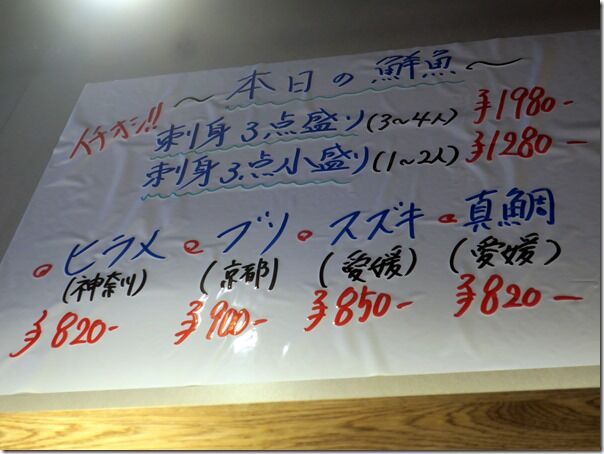 ～本日の鮮魚～
イチオシ!!
刺身3点盛り(3～4人) ¥1980-
刺身3点小盛り(1～2人) ¥1280-
・ヒラメ ・ブリ ・スズキ ・真鯛
(神奈川) (京都) (愛媛) (愛媛)
¥820- ¥900- ¥850- ¥820-